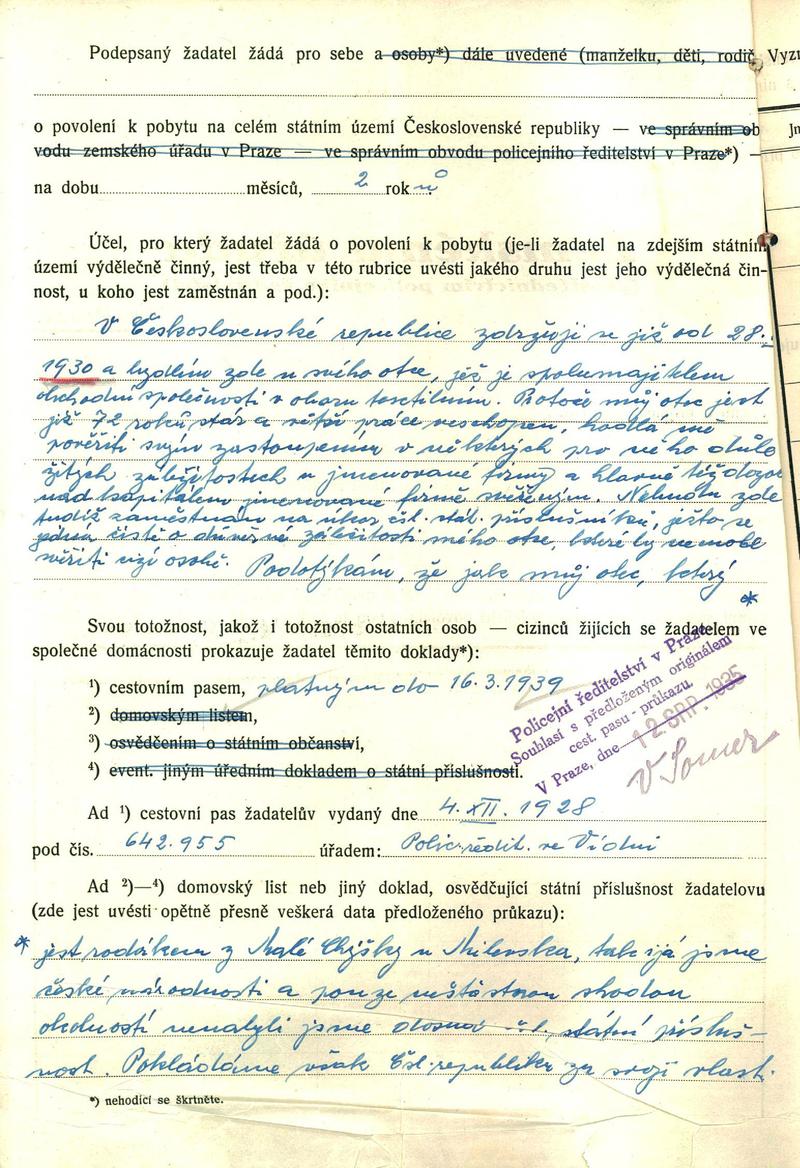 Podepsaný žadatel žádá pro sebe a osoby*) dále uvedené (manželku, děti, rodič
Vyzn
o povolení k pobytu na celém státním území Československé republiky — ve správním ob
vodu zemského úřadu v Praze — ve správním obvodu policejního ředitelství v Praze*) —
na dobu měsíců, 2 roků
Účel, pro který žadatel žádá o povolení k pobytu (je-li žadatel na zdejším státním
území výdělečně činný, jest třeba v této rubrice uvésti jakého druhu jest jeho výdělečná čin-
nost, u koho jest zaměstnán a pod.):
V Československé republice zdržuji se již od 28.
1930 a bydlím zde u svého otce, jež je spolumajitelem
obchodní společnosti v oboru textilním. Protože můj otec jest
již 72 roků stár a větší práce neschopen, hodlá mě
pověřiti svým zastoupením v některých pro něho důle
žitých záležitostech u jmenované firmy a hlavně též dozor
nad kapitálem jmenované firmě svěřeným. Nebudu zde
tudíž zaměstnán na úkor čsl. stát. příslušníků, ješto se
jedná čistě o důvěrné záležitosti mého otce, které by nemohl
svěřiti cizí osobě. Podotýkám, že jak můj otec, který
*
Svou totožnost, jakož i totožnost ostatních osob — cizinců žijících se žadatelem ve
společné domácnosti prokazuje žadatel těmito doklady*):
¹) cestovním pasem, platným do 16.3.1939
²) domovským listem,
³) osvědčením o státním občanství,
⁴) event. jiným úředním dokladem o státní příslušnosti.
Policejní ředitelství v Praze
Souhlasí s předloženým originálem
cest. pasu - průkazu.
V Praze, dne 12 SRP. 1935
Ad ¹) cestovní pas žadatelův vydaný dne 4. XII. 1928
pod čís. 642.955 úřadem: Polic. ředit. ve Vídni
Ad ²)—⁴) domovský list neb jiný doklad, osvědčující státní příslušnost žadatelovu
(zde jest uvésti opětně přesně veškerá data předloženého průkazu):
* jest rodákem z Malé Chýšky u Milevska, tak i já jsme
české národnosti a pouze nešťastnou shodou
okolností nenabyli jsme dosud čsl. státní přísluš-
nost. Pokládáme však Čsl. republiku za svojí vlast.
*) nehodící se škrtněte.